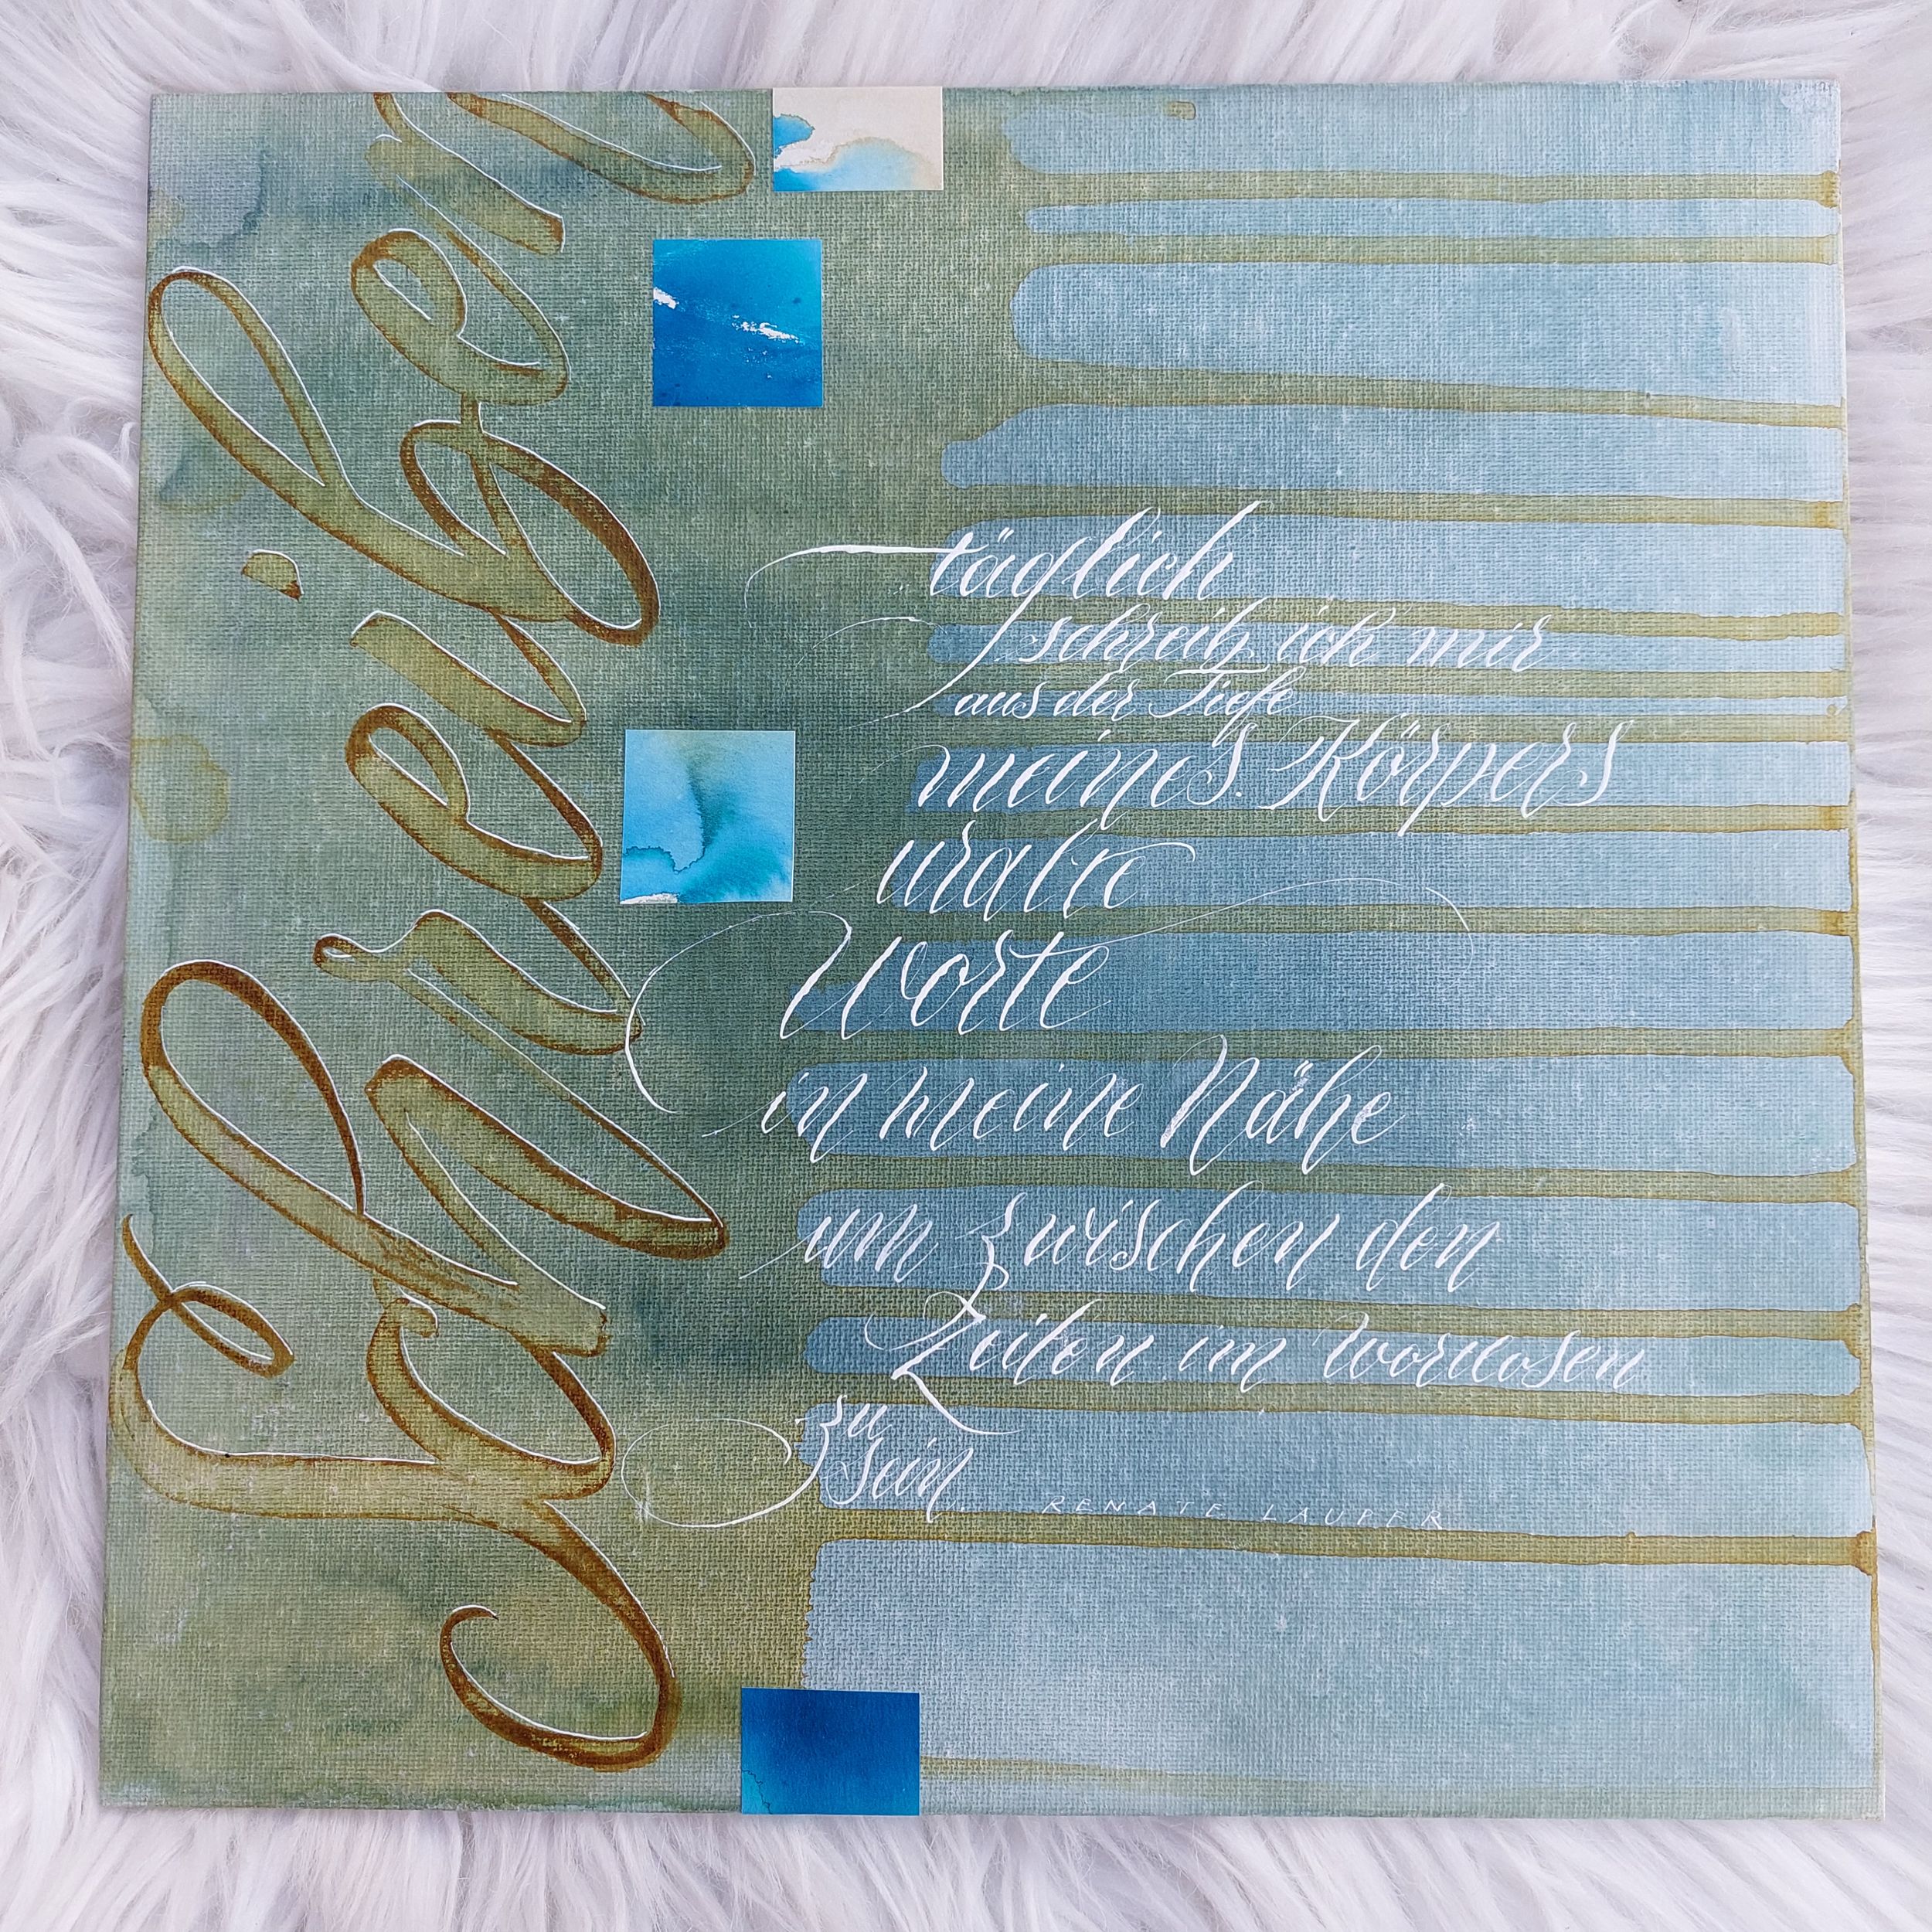 Schreiben
täglich
schreib ich mir
aus der Tiefe
meines Körpers
uralte
Worte
in meine Nähe
um zwischen den
Zeilen im wortlosen
zu
sein
RENATE LAUPER